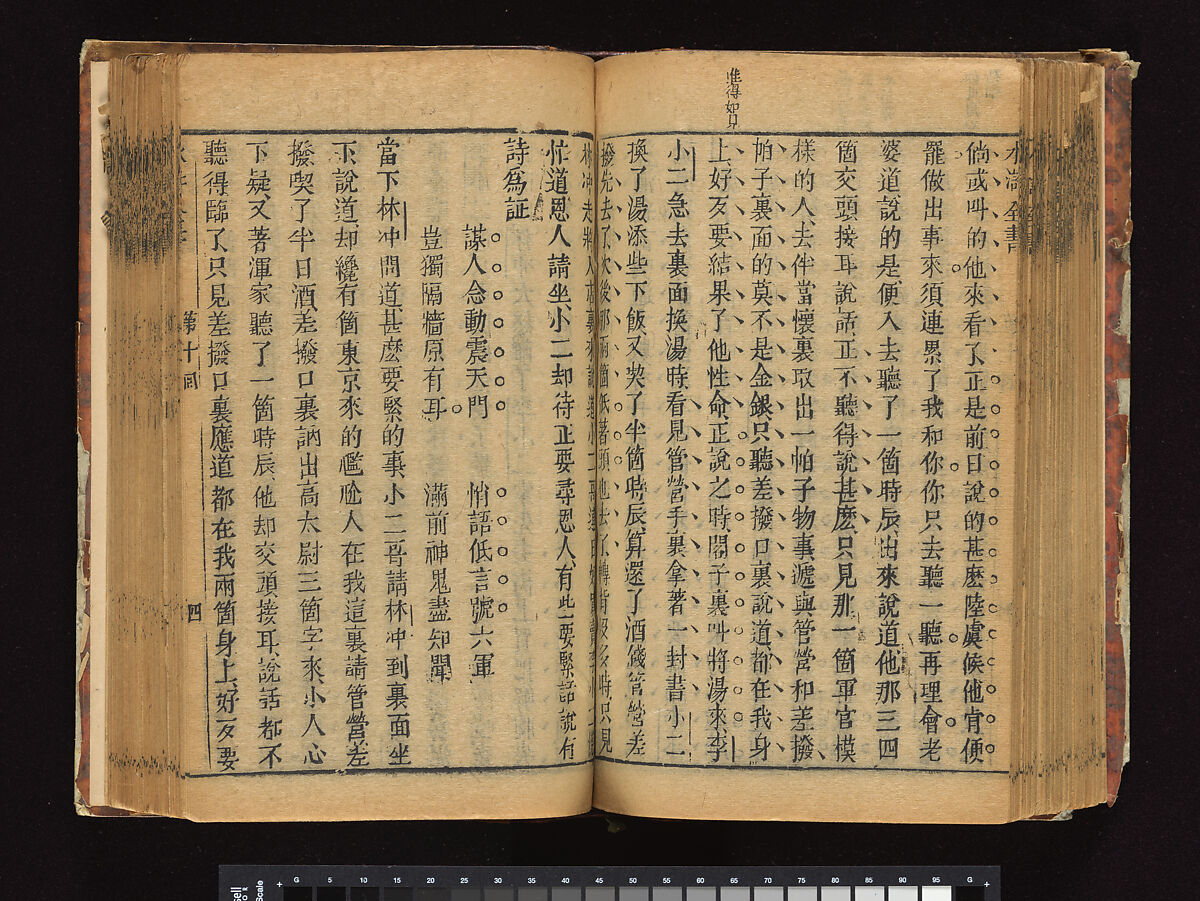 水滸全書
得如見
倘或叫的他來看了正是前日說的甚麽陸虞候他肯便
罷做出事來須連累了我和你你只去聽一聽再理會老
婆道說的是便入去聽了一箇時辰出來說道他那三四
箇交頭接耳說話正不聽得說甚麽只見那一箇軍官模
樣的人去伴當懷裏取出一帕子物事遞與管營和差撥
帕子裏面的莫不是金銀只聽差撥口裏說道都在我身
上好歹要結果了他性命正說之時閣子裏叫將湯來李
小二急去裏面換湯時看見管營手裏拿著一封書小二
換了湯添些下飯又喫了半箇時辰算還了酒錢管營差
撥先去了次後那兩箇低著頭也去了轉背沒多時只見
林冲走將入店裏來說道小二哥連日好買賣李小二慌
忙道恩人請坐小二却待正要尋恩人有些要緊話說有
詩爲証
謀人念動震天門 悄語低言號六軍
豈獨隔牆原有耳 滿前神鬼盡知聞
當下林冲問道甚麽要緊的事小二哥請林冲到裏面坐
下說道却纔有箇東京來的尷尬人在我這裏請管營差
撥喫了半日酒差撥口裏訥出高太尉三箇字來小人心
下疑又著渾家聽了一箇時辰他却交頭接耳說話都不
聽得臨了只見差撥口裏應道都在我兩箇身上好歹要
第十回 四